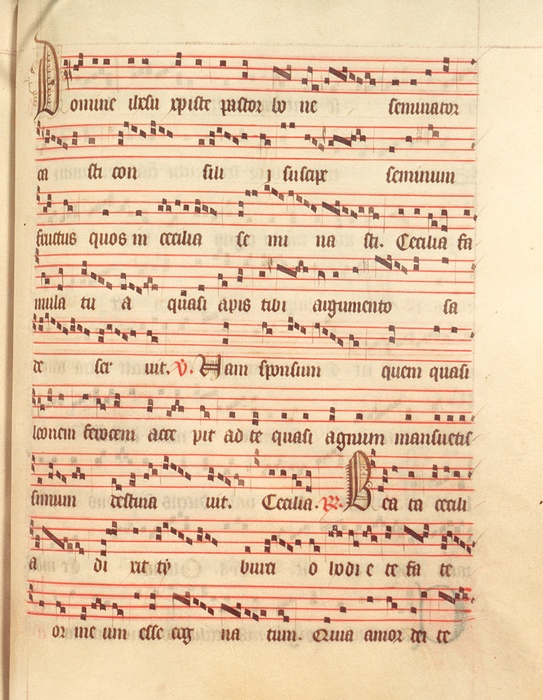 Domine ihesu xpiste pastor bo ne seminator
ca sti con sili j suscipe seminum
fructus quos in cecilia se mi na sti. Cecilia fa
mula tu a quasi apis tibi argumento sa
de ser uit. V. Nam sponsum quem quasi
leonem ferocem acce pit ad te quasi agnum mansuetis
simum destina uit. Cecilia. R. Bea ta cecili
a di xit ty burci o hodi e te fa te
or me um esse cog na tum. Quia amor dei te